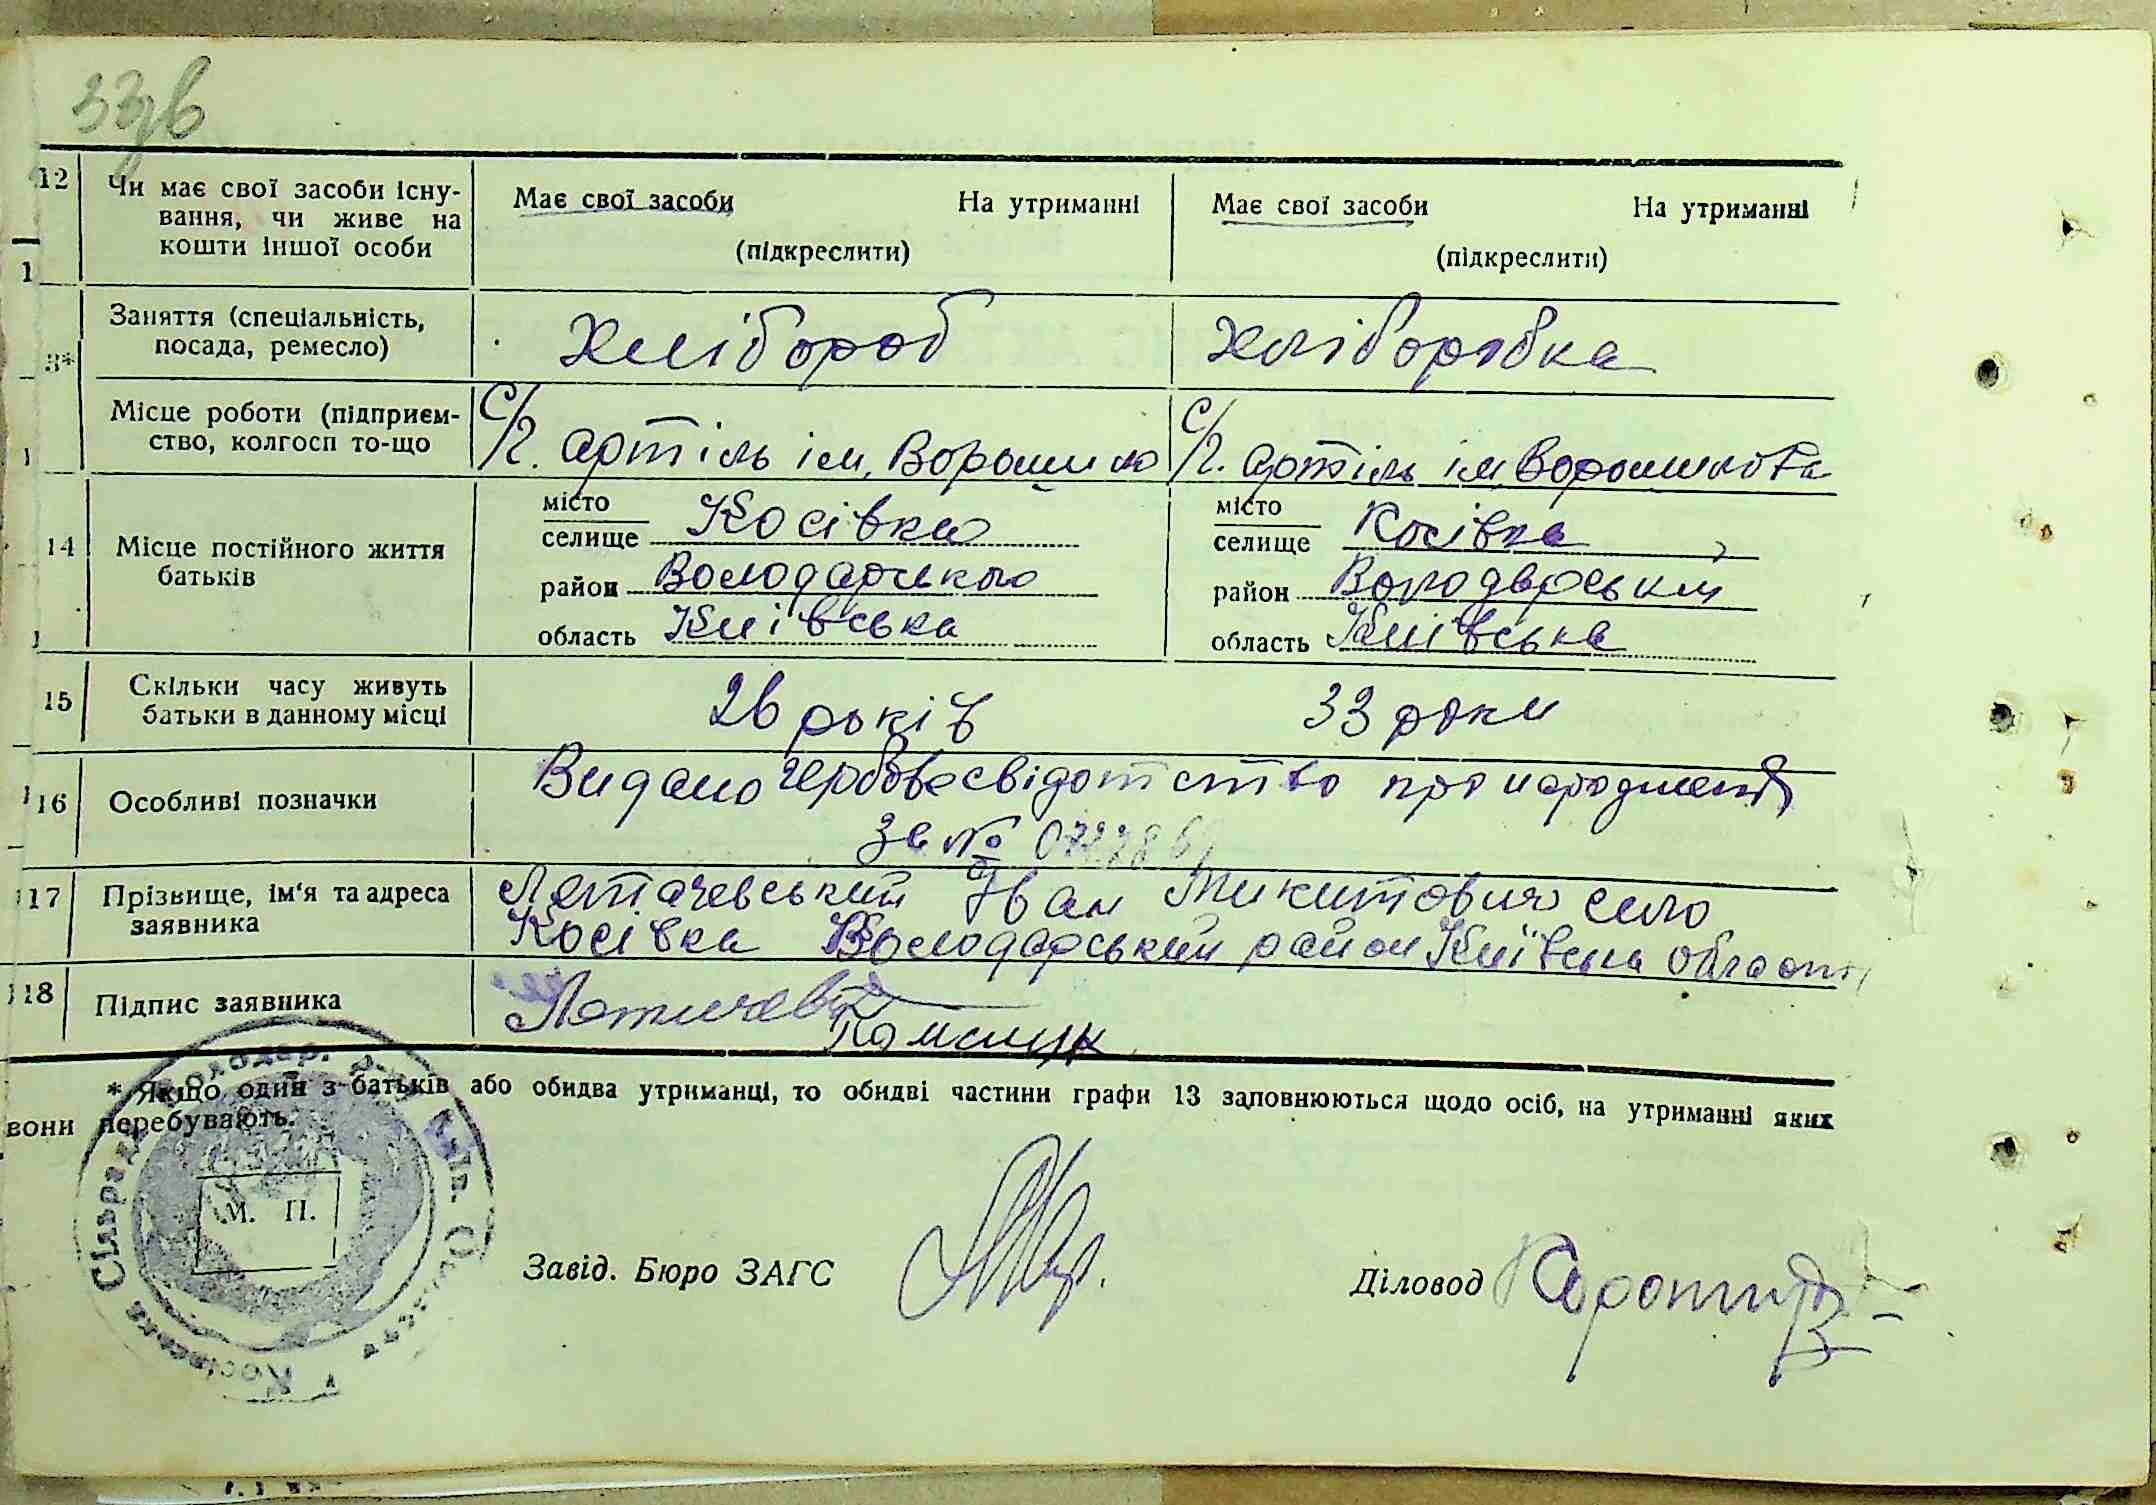 33зв
12 Чи має свої засоби існу- Має свої засоби На утриманні Має свої засоби На утриманні
вання, чи живе на
кошти іншої особи (підкреслити) (підкреслити)
Заняття (спеціальність, Хлібороб Хліборобка
посада, ремесло)
3*
Місце роботи (підприєм- С/г. артіль ім. Вороши С/г. артіль ім Ворошилова
ство, колгосп то-що
місто Косівка місто Косівка
селище селище
14 Місце постійного життя район Володарський район Володарський
батьків
область Київська область Київська
15 Скільки часу живуть 26 років 33 роки
батьки в данному місці
16 Особливі позначки Видано гербове свідотство про народження
За №
17 Прізвище, ім'я та адреса Летачевський Іван Микитович село
заявника Косівка Володарський район Київська області
18 Підпис заявника
* Якщо один з батьків або обидва утриманці, то обидві частини графи 13 заповнюються щодо осіб, на утриманні яких
вони перебувають.
М. П.
Косівська Сільрада Володар. р. Київ. Област
Завід. Бюро ЗАГС Діловод